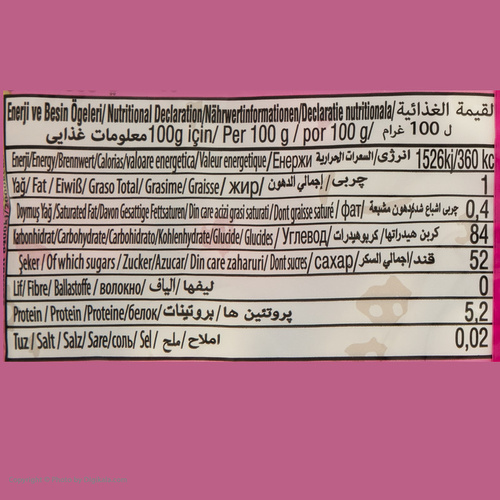 Enerji ve Besin Ögeleri/ Nutritional Declaration/Nährwertinformationen/Declaratie nutritionala/لقيمة الغذائية
معلومات غذایی 100g için/ Per 100 g / por 100 g/ ل 100 غرام
Enerji/Energy/Brennwert/Calorias/valoare energetica/Valeur energetique/Енержи انرژی/السعرات الحرارية 1526kj/360 kc
Yağ/ Fat / Eiwiß/ Graso Total/ Grasime/ Graisse/ жир/ چربی/إجمالي الدهون 1
Doymuş Yağ /Saturated Fat/Davon Gesattige Fettsaturen/ Din care acizi grasi saturati/ Dont graisse saturé / фат/ چربی اشباع شده/دهون مشبعة 0,4
Karbonhidrat/Carbohydrate/Carbohidrato/Kohlenhydrate/Glucide/ Glucides /Углевод/ كربن هيدراتها/ كربوهيدرات 84
Şeker / Of which sugars / Zucker/Azucar/ Din care zaharuri/ Dont sucres/ сахар/ قند/إجمالي السكر 52
Lif/ Fibre/ Ballastoffe / волокно/ ليفها/ألياف 0
Protein / Protein /Proteine/белок/ پروتئين ها /بروتينات 5,2
Tuz / Salt / Salz/ Sare/соль/ Sel/ املاح/ملح 0,02